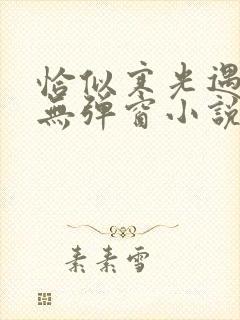 恰似寒光遇
無彈窗小說
素素雪